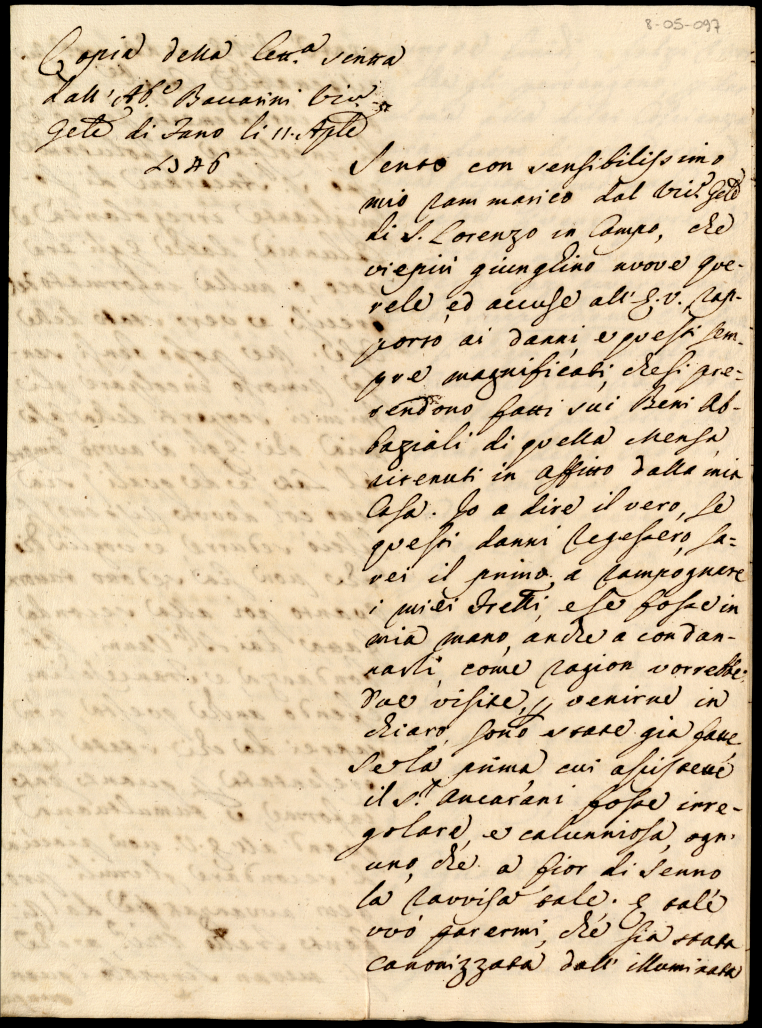 8-05-097
Copia della Lett.ª scritta
dall' Ab.e Baccarini Vic.
Gele di Fano li 11. Aple
1746
Sento con sensibilissimo
mio rammarico dal Vic.º Gele
di S. Lorenzo in Campo, che
viepiù giunghino nuove que-
rele, ed accuse all' E. V. rap-
porto ai danni, e questi sem-
pre magnificati, che si pre-
tendono fatti sui Beni Ab-
baziali di quella Mensa,
ritenuti in affitto dalla mia
Casa. Io a dire il vero, se
questi danni regessero, sa-
rei il primo a rampognare
i miei Fretti, e se fosse in
mia mano, anche a condan-
narli, come ragion vorrebbe.
Due visite, p venirne in
chiaro, sono state già fatte,
Se la prima, cui assistette
il S.r Ancarani fosse irre-
golare, e calunniosa, ogn'
uno, che a fior di Senno
la ravvisa tale. E tale
vvò parermi, che sia stata
canonizzata dall' illuminata